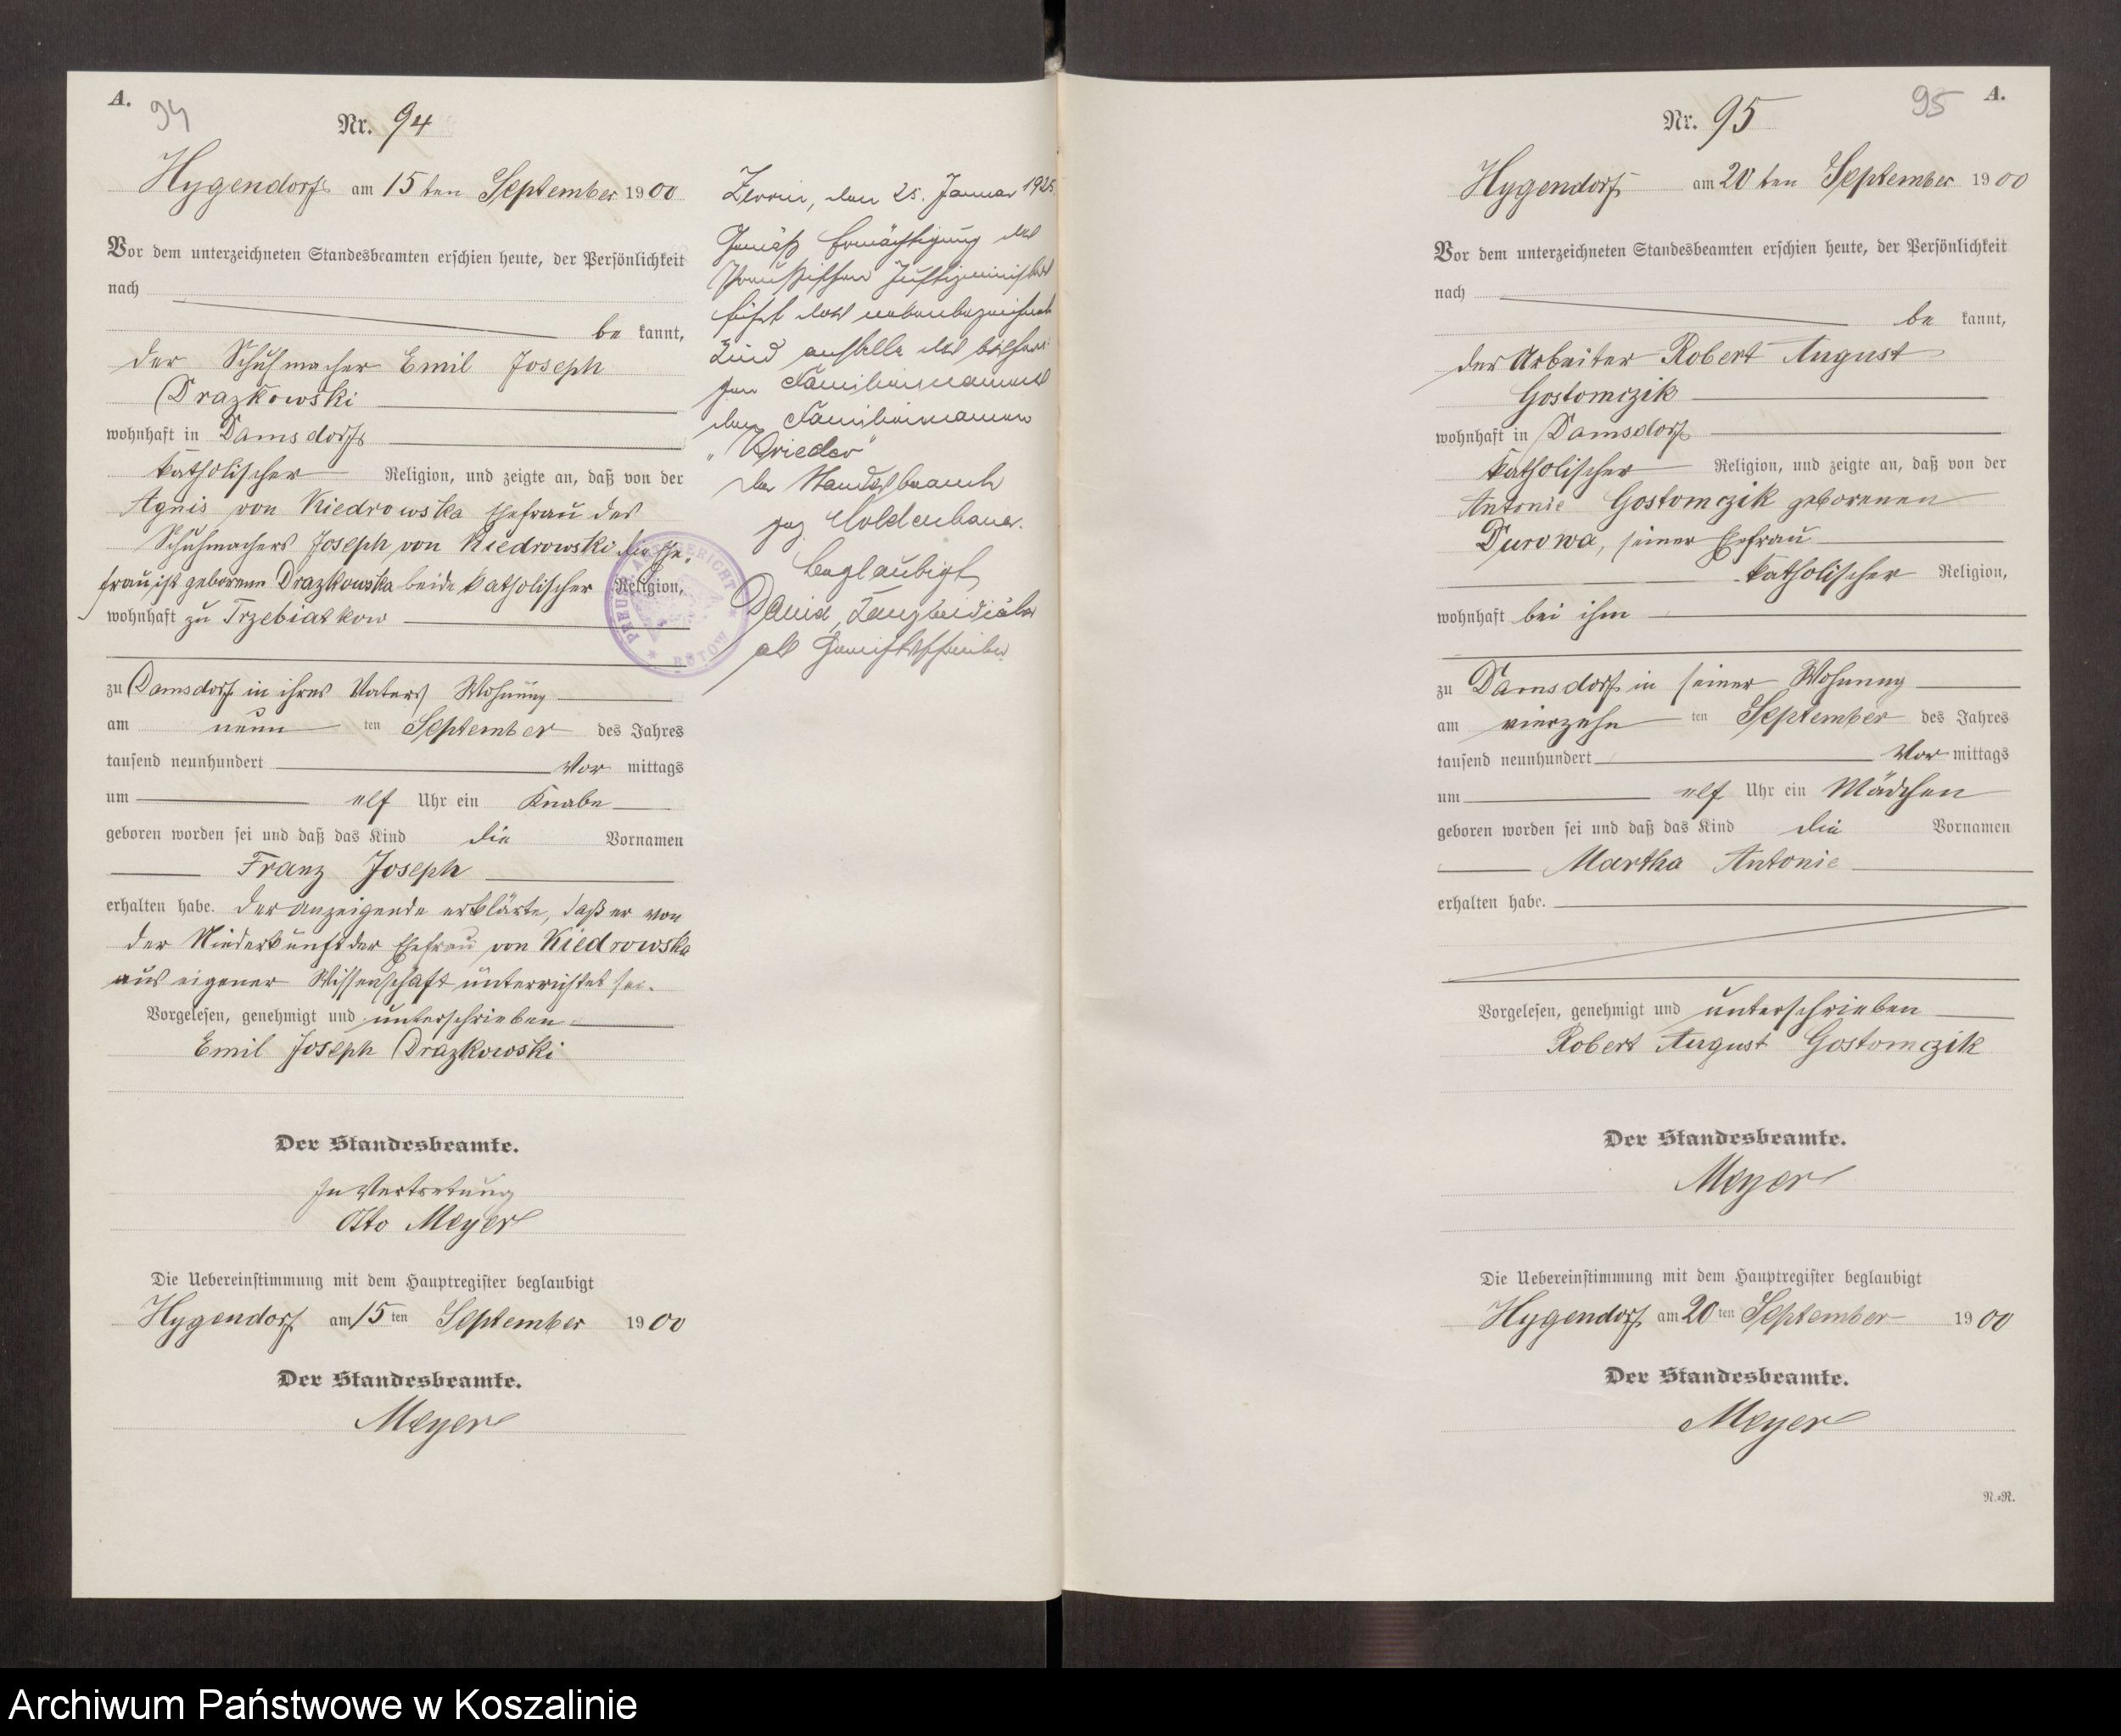 A.
94
Nr. 94
Hygendorf am 15 ten September 1900
Vor dem unterzeichneten Standesbeamten erschien heute, der Persönlichkeit
nach
be kannt,
der Schuhmacher Emil Joseph
Drazkowski
wohnhaft in Damsdorf
katholischer Religion, und zeigte an, daß von der
Agnes von Kiedrowska Ehefrau des
Schuhmachers Joseph von Kiedrowski die Ehe-
frau ist geborene Drazkowska beide katholischer Religion,
wohnhaft zu Trzebiatkow
zu Damsdorf in ihres Vaters Wohnung
am neun ten September des Jahres
tausend neunhundert Vor mittags
um elf Uhr ein Knabe
geboren worden sei und daß das Kind die Vornamen
Franz Joseph
erhalten habe. Der Anzeigende erklärte, daß er von
der Niederkunft der Ehefrau von Kiedrowska
aus eigener Wissenschaft unterrichtet sei.
Vorgelesen, genehmigt und unterschrieben
Emil Joseph Drazkowski
Der Standesbeamte.
In Vertretung
Otto Meyer
Die Uebereinstimmung mit dem Hauptregister beglaubigt
Hygendorf am 15 ten September 1900
Der Standesbeamte.
Meyer
Zerrin, den 25. Januar 1925.
Gemäß Ermächtigung des
Preußischen Justizministers
führt das nebenbezeichnete
Kind anstelle des bisheri-
gen Familiennamens
den Familiennamen
"Krieder"
Der Standesbeamte
gez. Moldenhauer.
Beglaubigt
David, Kanzleidiätar
als Gerichtsschreiber
PREUSS. AMTSGERICHT
BÜTOW
95
A.
Nr. 95
Hygendorf am 20 ten September 1900
Vor dem unterzeichneten Standesbeamten erschien heute, der Persönlichkeit
nach
be kannt,
der Arbeiter Robert August
Gostomczik
wohnhaft in Damsdorf
katholischer Religion, und zeigte an, daß von der
Antonie Gostomczik geborenen
Durowa, seiner Ehefrau
katholischer Religion,
wohnhaft bei ihm
zu Damsdorf in seiner Wohnung
am vierzehn ten September des Jahres
tausend neunhundert Vor mittags
um elf Uhr ein Mädchen
geboren worden sei und daß das Kind die Vornamen
Martha Antonie
erhalten habe.
Vorgelesen, genehmigt und unterschrieben
Robert August Gostomczik
Der Standesbeamte.
Meyer
Die Uebereinstimmung mit dem Hauptregister beglaubigt
Hygendorf am 20 ten September 1900
Der Standesbeamte.
Meyer
N.=R.
Archiwum Państwowe w Koszalinie